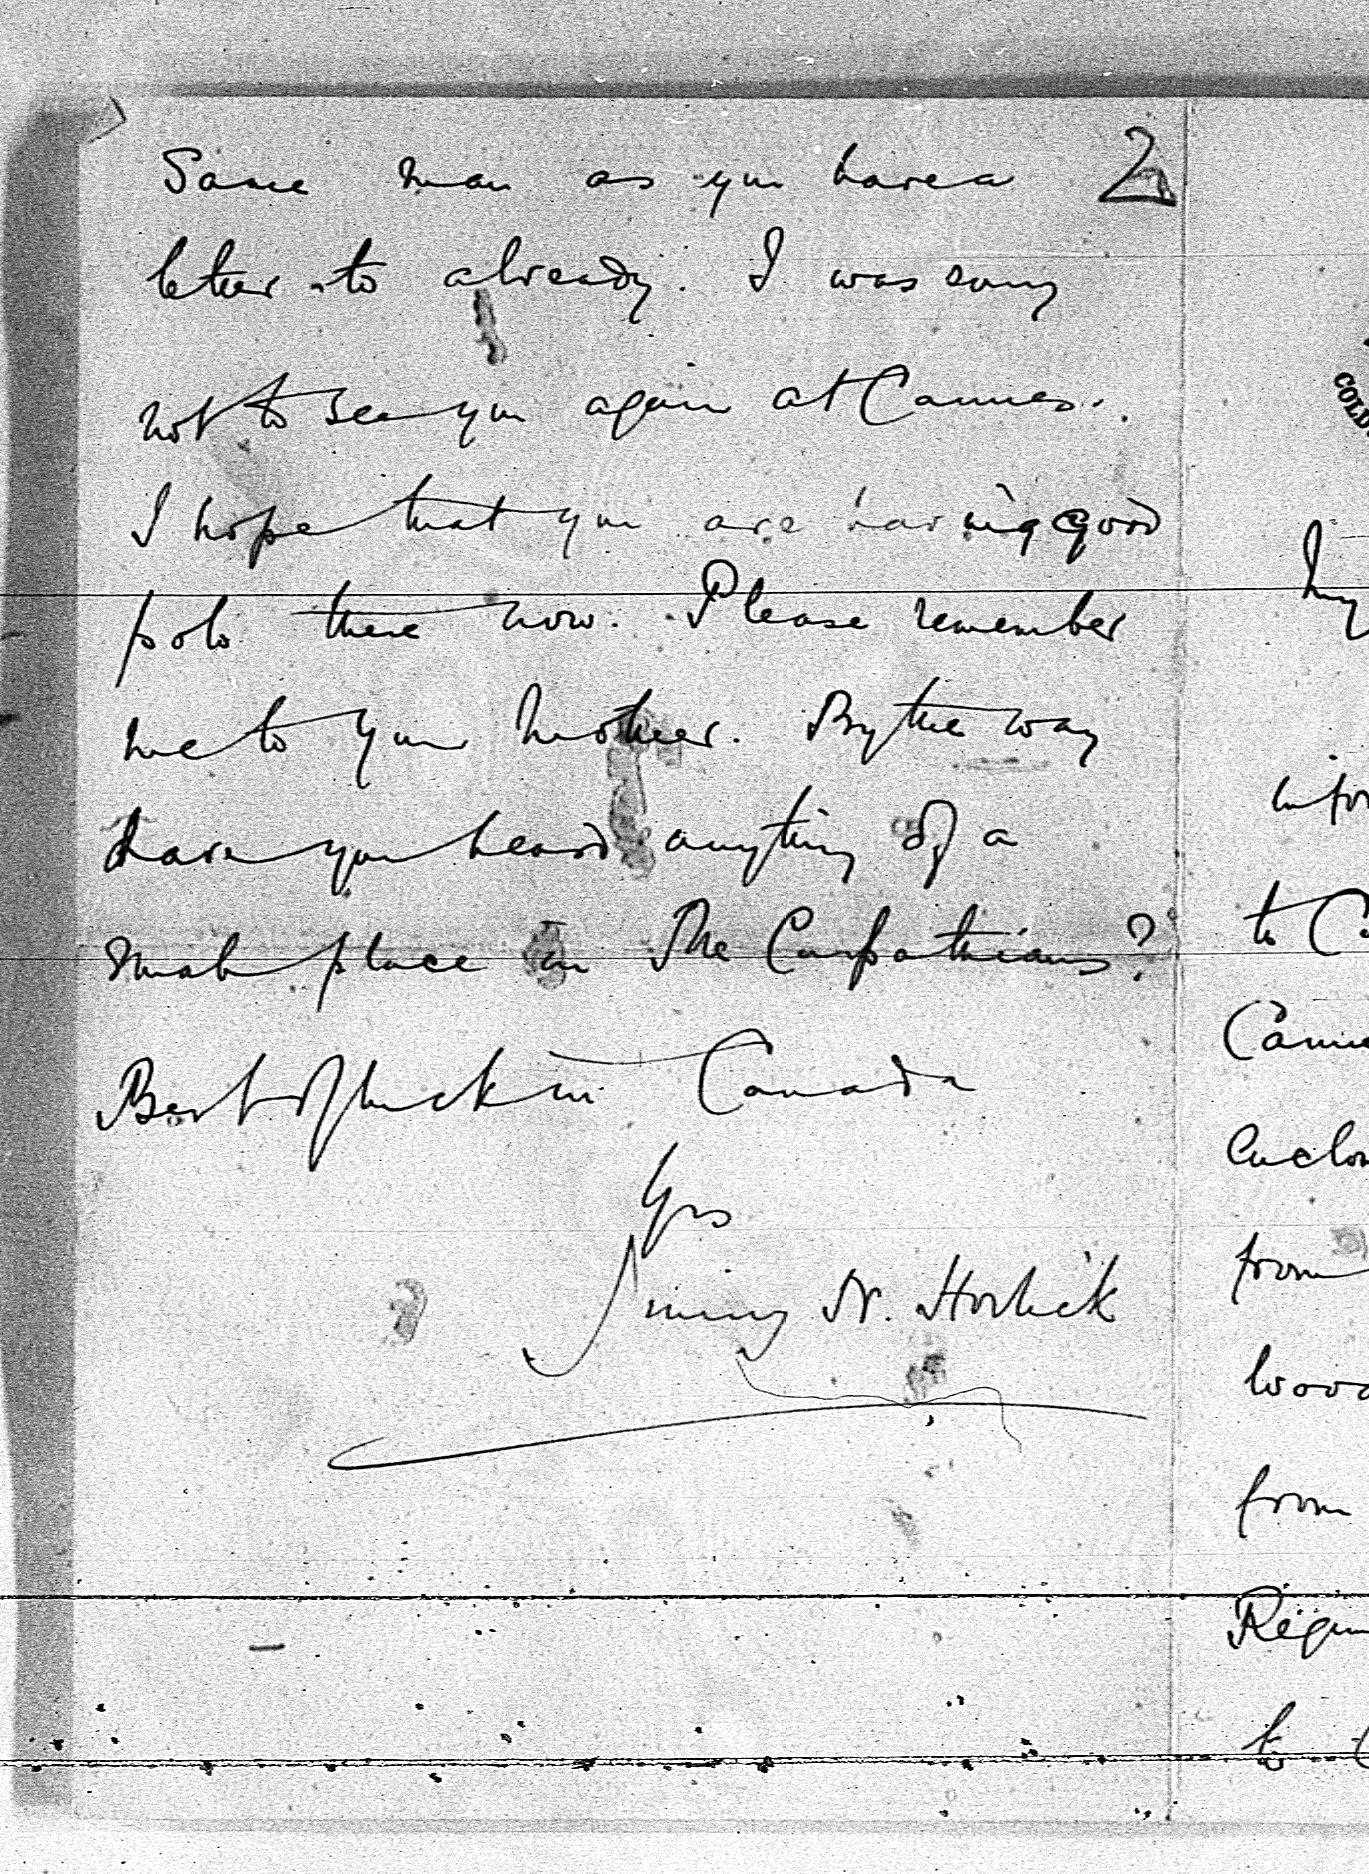 2
Same man as you have a
letter to already. I was sorry
not to see you again at Cannes.
I hope that you are having good
polo there now. Please remember
me to your mother. By the way
have you heard anything of a
small place in The Carpathians?
Best of luck in Canada
Yrs
Jimmy N. Horlick
COLD
My
infor
to C
Canne
Enclos
from
wood
from
Regim
to